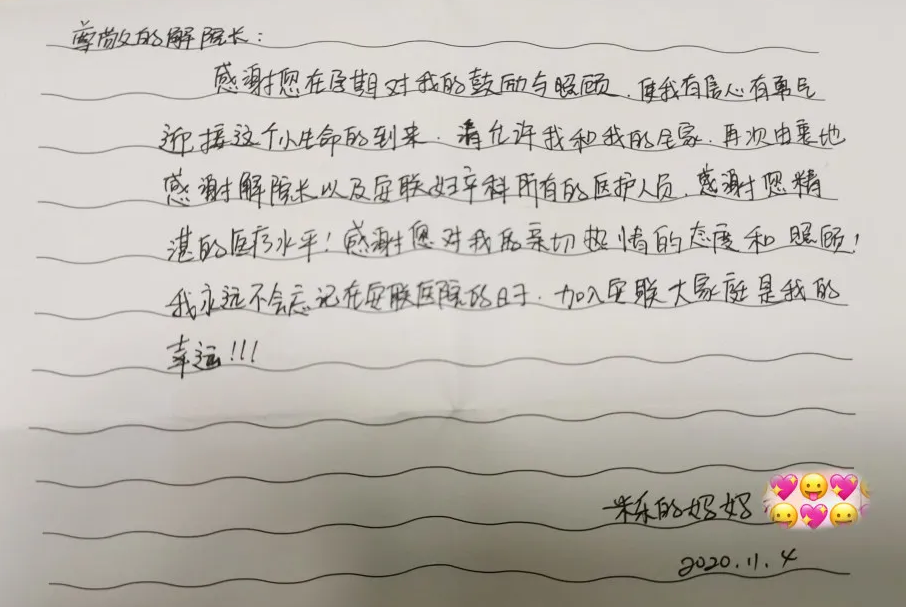 尊敬的解院长：
感谢您在孕期对我的鼓励与照顾，使我有信心有勇气
迎接这个小生命的到来，请允许我和我的全家，再次由衷地
感谢解院长以及安联妇产科所有的医护人员，感谢您精
湛的医疗水平！感谢您对我的亲切热情的态度和照顾！
我永远不会忘记在安联医院的日子，加入安联大家庭是我的
幸运！！！
的妈妈
2020.11.4